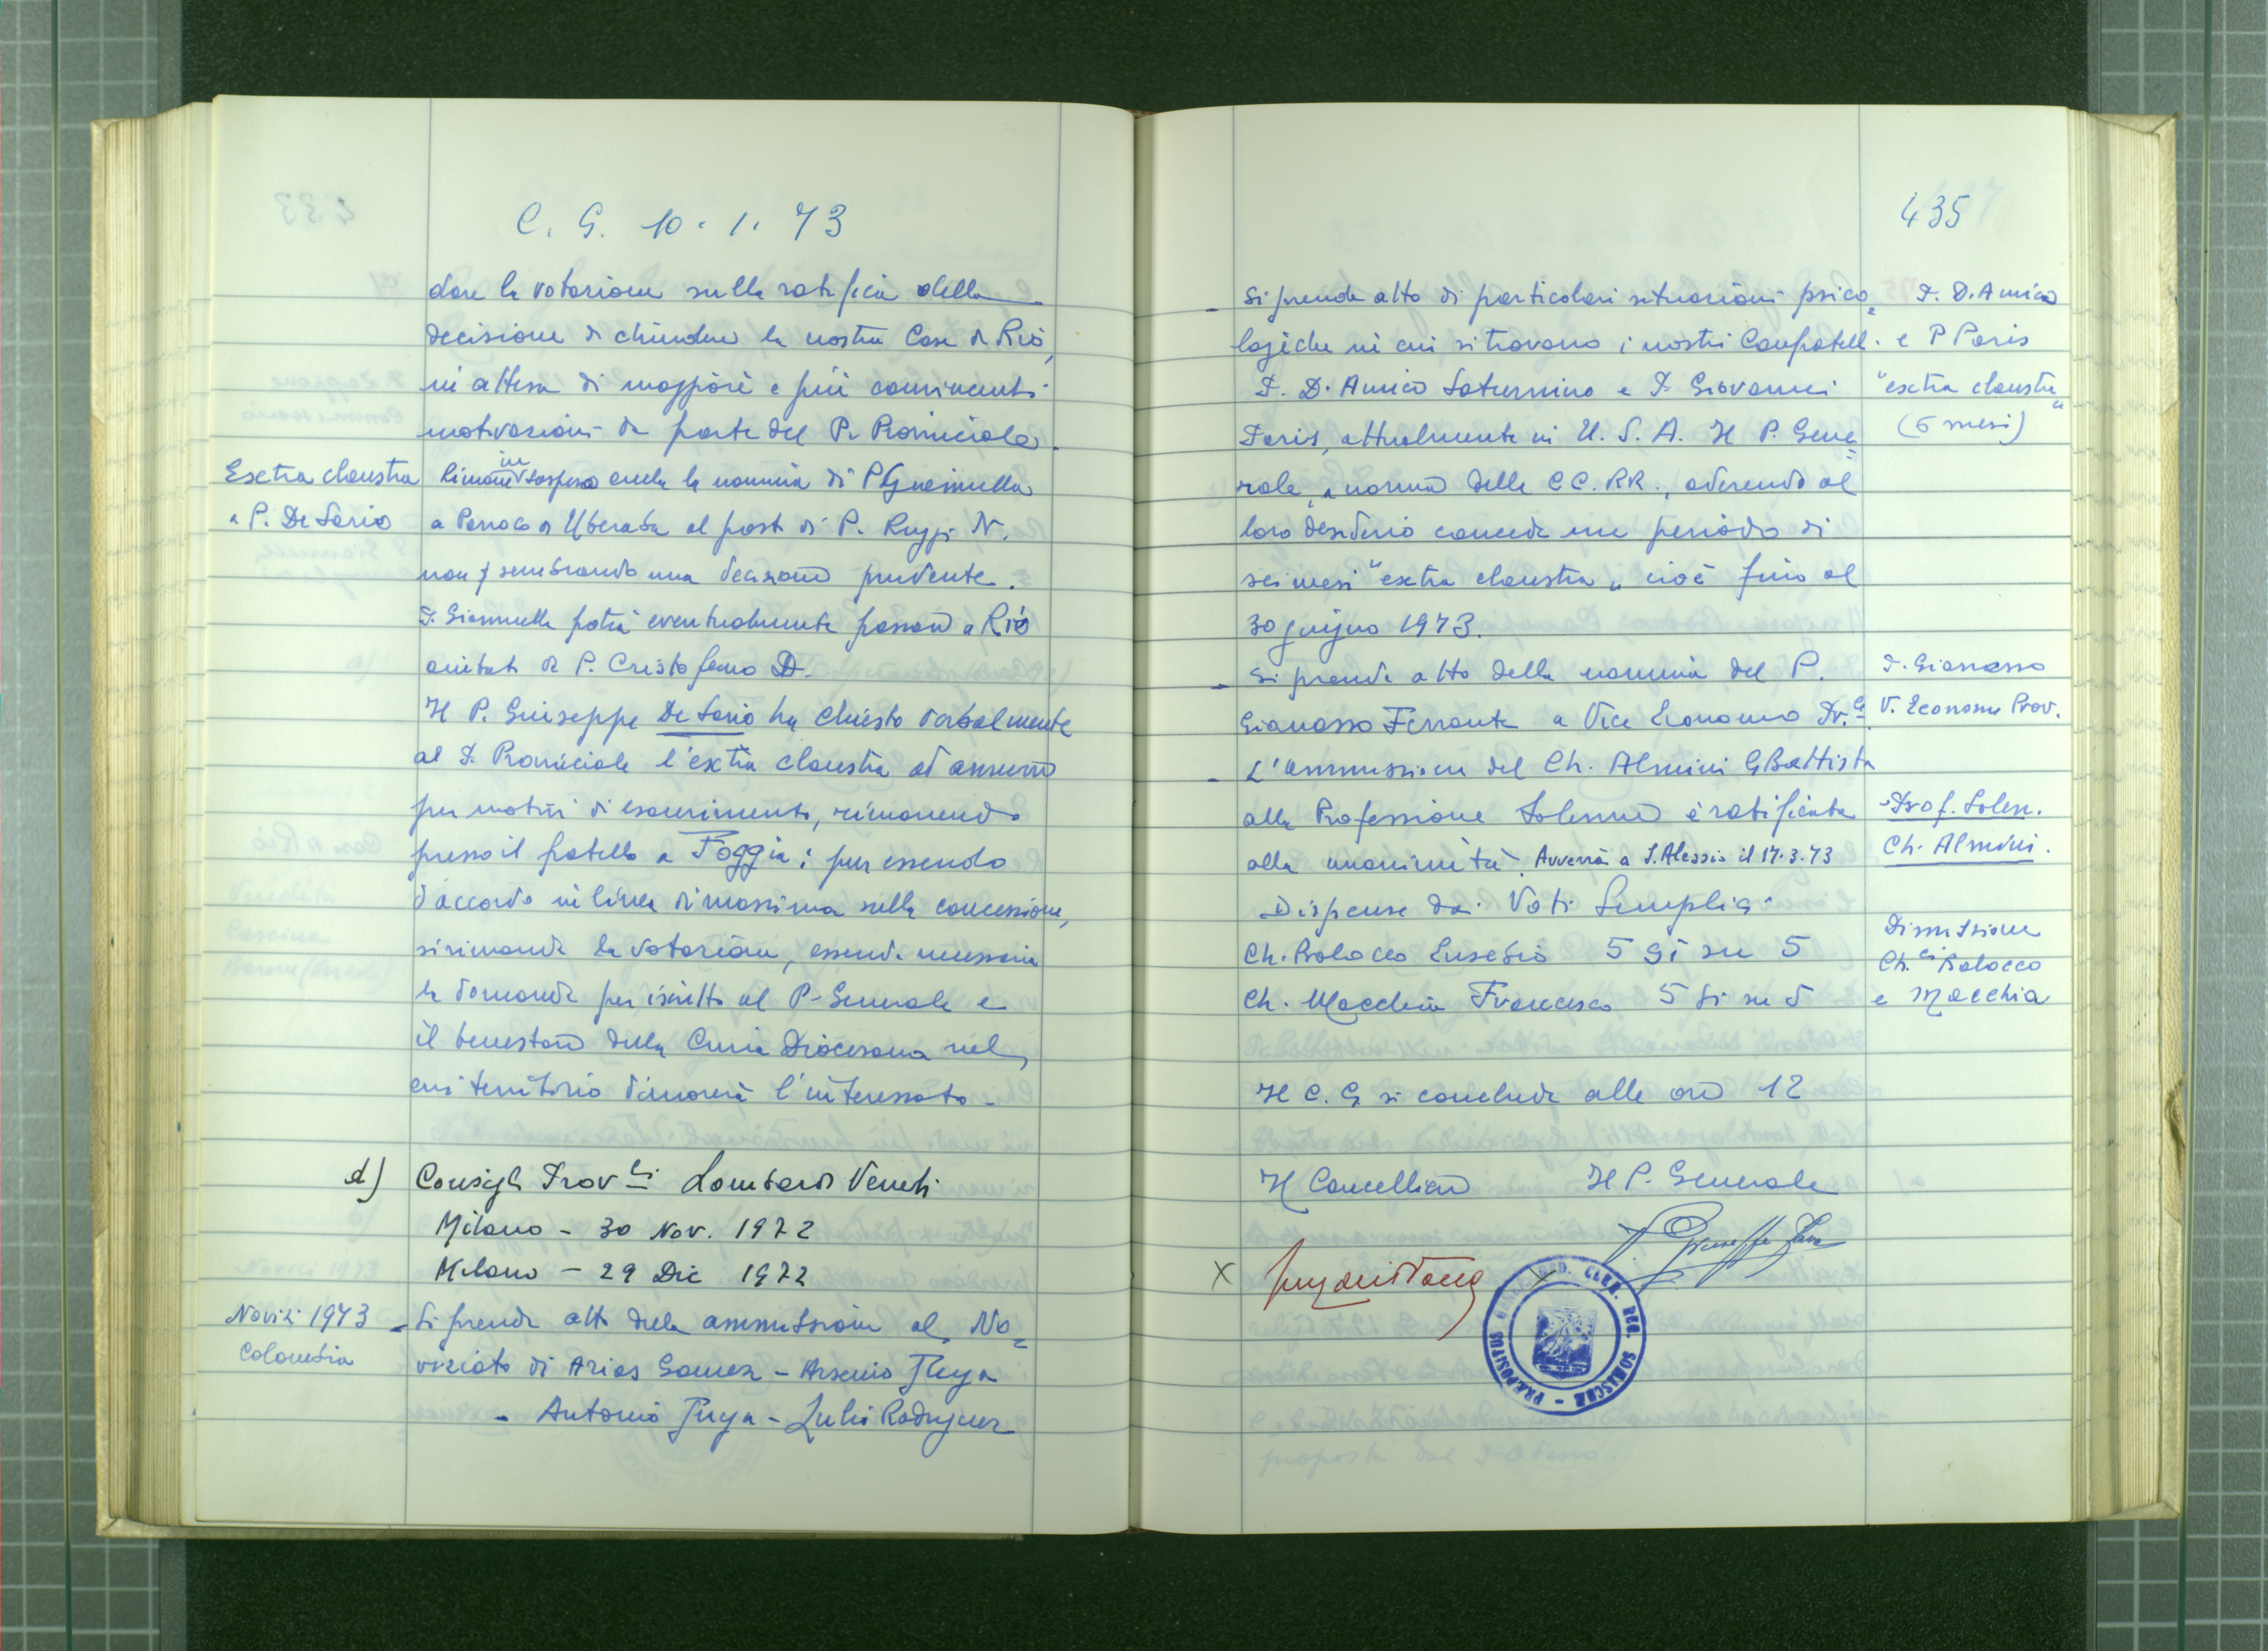 C. G. 10. 1. 73
dare la votazione sulla ratifica della
decisione di chiudere la nostra Casa di Rio,
in attesa di maggiori e più convincenti
motivazioni da parte del P. Provinciale.
Extra claustra
a P. De Sario
Rimane in sospeso anche la nomina di P. Giannella
a Parroco di Uberaba al posto di P. Ruggi N.
non sembrando una decisione prudente.
P. Giannella potrà eventualmente passare a Rio
aiutato da P. Cristofano D.
Il P. Giuseppe De Sario ha chiesto verbalmente
al P. Provinciale l'extra claustra ad annum
per motivi di esaurimento, rimanendo
presso il fratello a Foggia: pur essendo
d'accordo in linea di massima sulla concessione,
si rimanda la votazione, essendo necessaria
la domanda per iscritto al P. Generale e
il benestare della Curia Diocesana nel
cui territorio dimorerà l'interessato.
d) Consigli Prov.li Lombardo Veneti
Milano - 30 Nov. 1972
Milano - 29 Dic 1972
Novizi 1973
Colombia
- Si prende atto della ammissione al No=
viziato di Arias Gomez - Arsenio Puya
- Antonio Puya - Julio Rodriguez
435
- Si prende atto di particolari situazioni psico=
logiche in cui si trovano i nostri Confratelli
P. D'Amico Saturnino e P. Giovanni
Paris, attualmente in U.S.A. Il P. Gene=
rale, a norma delle CC.RR., aderendo al
loro desiderio concede un periodo di
sei mesi "extra claustra" cioè fino al
30 giugno 1973.
P. D'Amico
e P Paris
"extra claustra"
(6 mesi)
- Si prende atto della nomina del P.
Gianasso Ferrante a Vice Economo Pr.le
P. Gianasso
V. Economo Prov.
- L'ammissione del Ch. Almini GBattista
alla Professione Solenne è ratificata
alla unanimità. Avverrà a S. Alessio il 17.3.73
Prof. Solen.
Ch. Almini.
Dispense dai Voti Semplici
Ch. Balocco Eusebio 5 Si su 5
Ch. Macchia Francesco 5 Si su 5
Dimissione
Ch.ci Balocco
e Macchia
Il C. G. si conclude alle ore 12
Il Cancelliere Il P. Generale
P. Giuseppe Fava
PRAEPOSITUS CLER. REG. SOMASCHAE